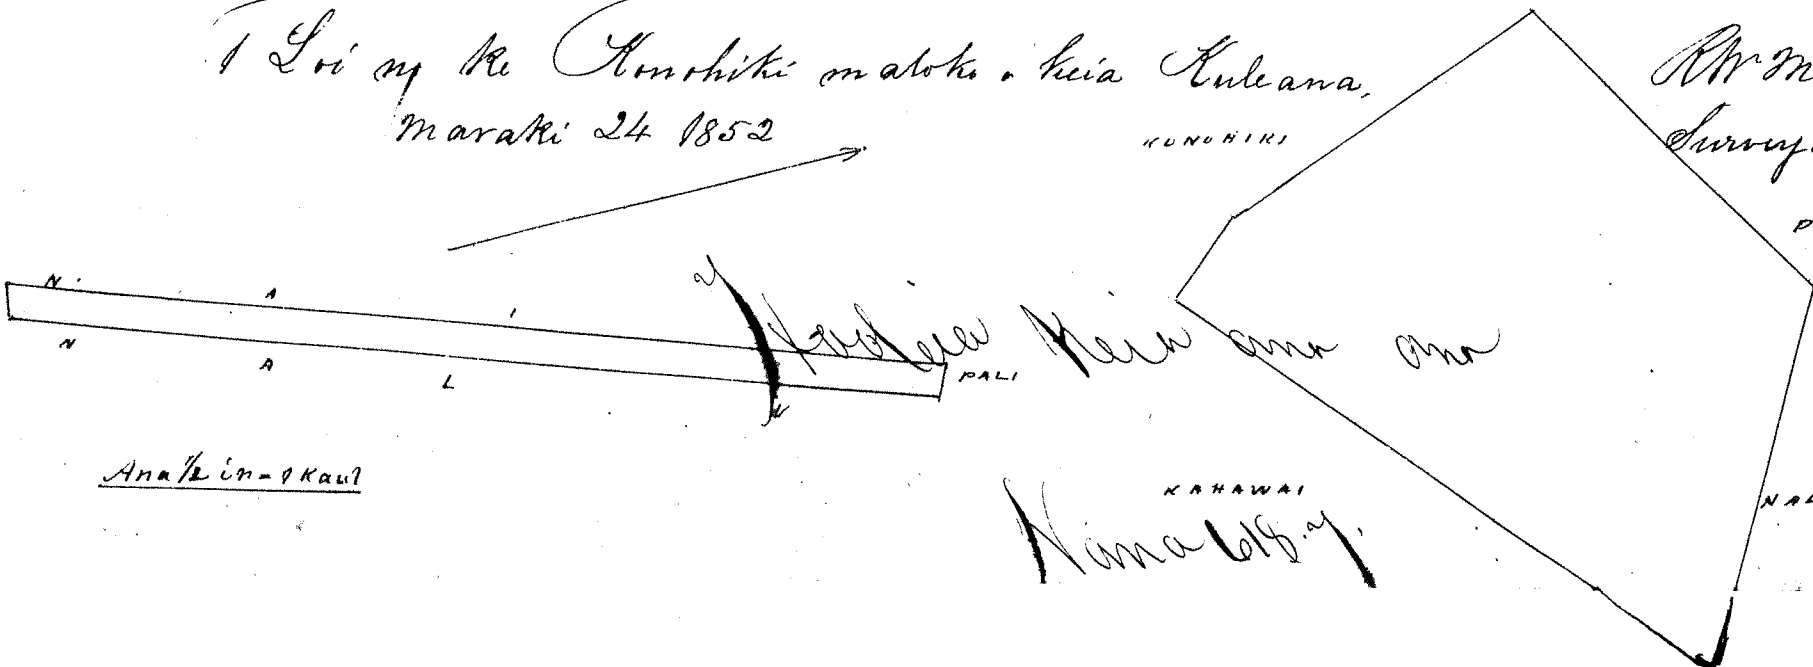 1 Loi no ke Konohiki maloko o keia Kuleana.
Maraki 24 1852
RW M
Survey.
KONOHIKI
P
N A I
N A L U
PALI
Hooleia Keia ana ana
Ana ½ in = 1 Kaul
KAHAWAI
NAL
Nana 618.7.